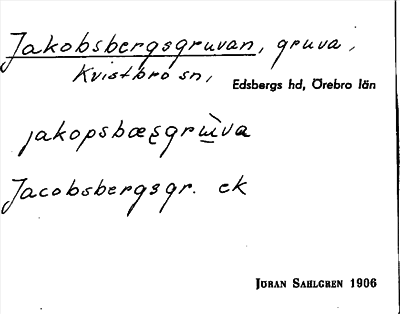 Jakobsbergsgruvan, gruva,
Kvistbro sn,
Edsbergs hd, Örebro län
Jacobsbergsgr. ek
JÖRAN SAHLGREN 1906